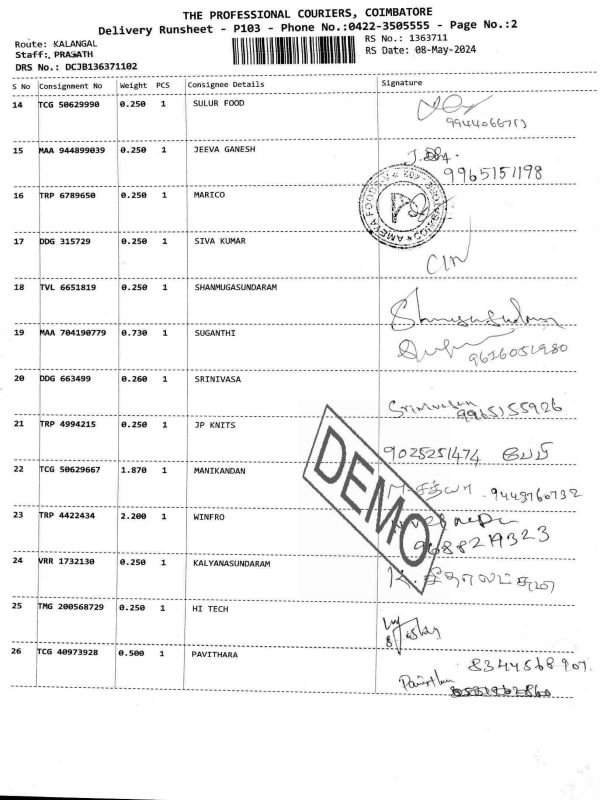 THE PROFESSIONAL COURIERS, COIMBATORE
Delivery Runsheet - P103 - Phone No.:0422-3505555 - Page No.:2
Route: KALANGAL
RS No.: 1363711
Staff:, PRASATH
RS Date: 08-May-2024
DRS No.: DCJB136371102
S No Consignment No Weight PCS Consignee Details Signature
14 TCG 50629990 0.250 1 SULUR FOOD
15 MAA 944899039 0.250 1 JEEVA GANESH
9965151198
16 TRP 6789650 0.250 1 MARICO
17 DDG 315729 0.250 1 SIVA KUMAR
18 TVL 6651819 0.250 1 SHANMUGASUNDARAM
19 MAA 704190779 0.730 1 SUGANTHI
20 DDG 663499 0.260 1 SRINIVASA
Srinivasan
9965155926
21 TRP 4994215 0.250 1 JP KNITS
9025251474 பேபி
22 TCG 50629667 1.870 1 MANIKANDAN
23 TRP 4422434 2.200 1 WINFRO
9688219323
24 VRR 1732130 0.250 1 KALYANASUNDARAM
25 TMG 200568729 0.250 1 HI TECH
26 TCG 40973928 0.500 1 PAVITHARA
8344568907.
DEMO